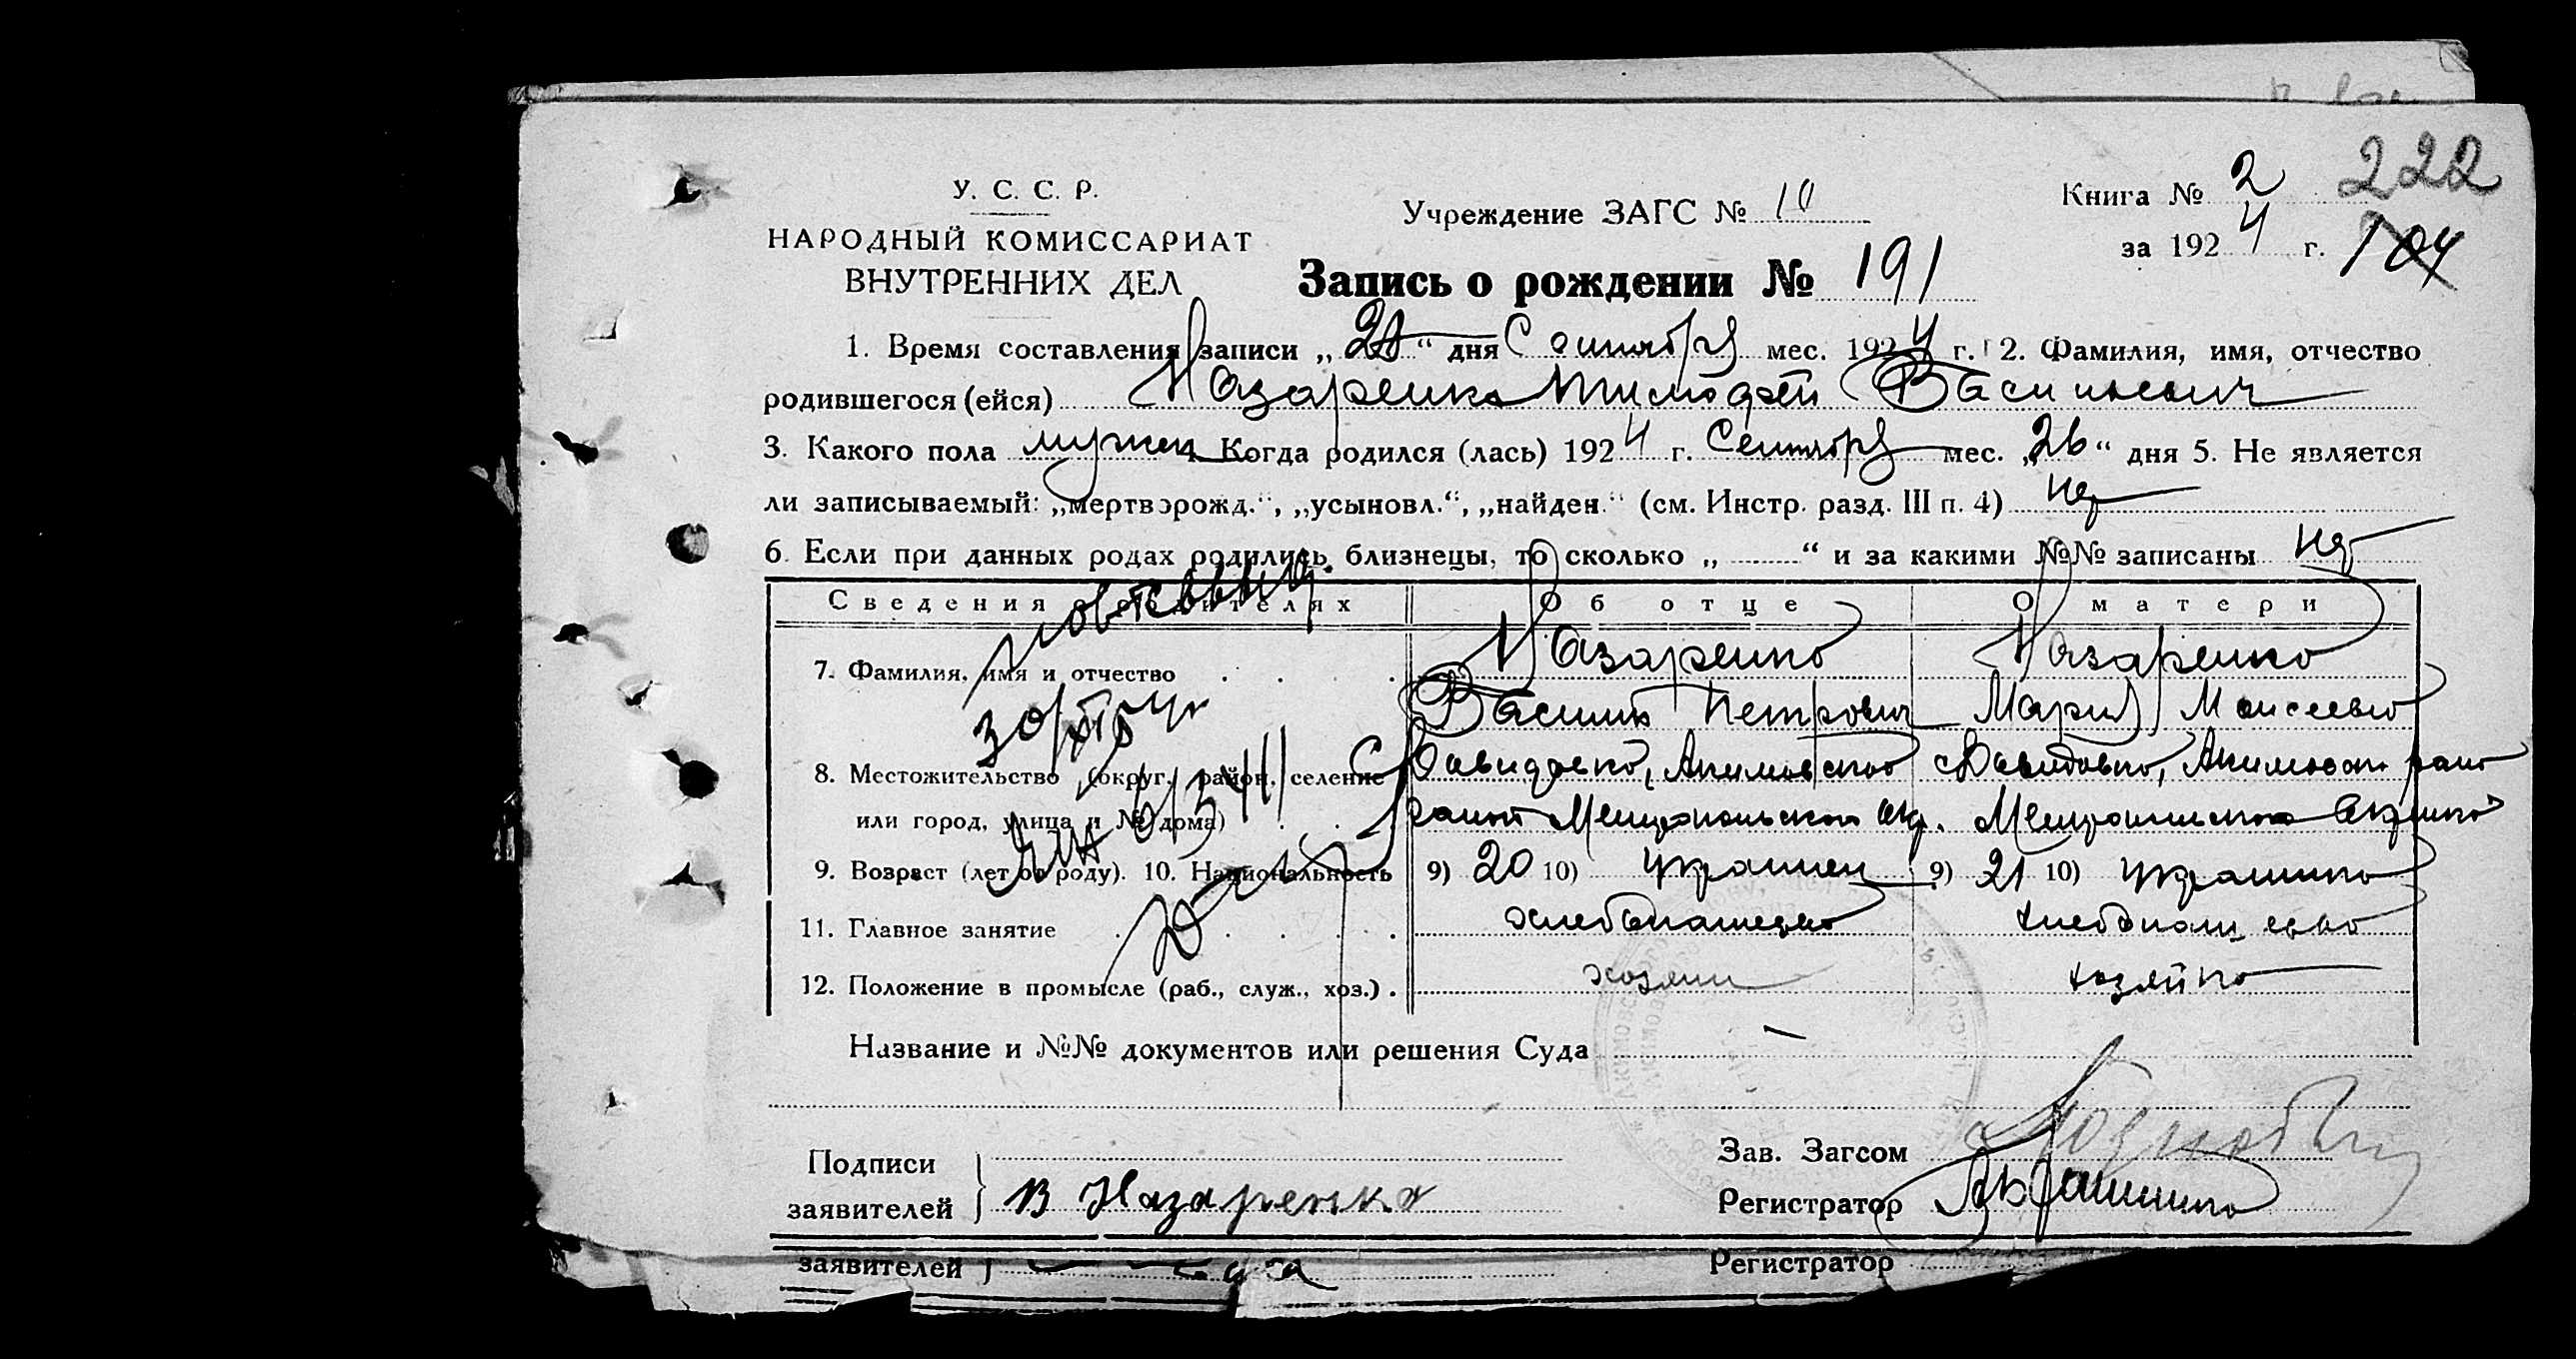 222
У. С. С. Р.
НАРОДНЫЙ КОМИССАРИАТ
ВНУТРЕННИХ ДЕЛ
Учреждение ЗАГС № 10
Книга № 2
за 1924 г. 104
Запись о рождении № 191
1. Время составления записи „ “ дня Сентября мес. 1924 г. 2. Фамилия, имя, отчество
родившегося (ейся) Назаренко Тимофей Васильевич
3. Какого пола мужск Когда родился (лась) 1924 г. Сентября мес. „26“ дня 5. Не является
ли записываемый: „мертворожд.“, „усыновл.“, „найден.“ (см. Инстр. разд. III п. 4) нет
6. Если при данных родах родились близнецы, то сколько „ “ и за какими №№ записаны нет
Сведения о родителях Об отце О матери
7. Фамилия, имя и отчество Назаренко Назаренко
Василий Петрович Мария Моисеевна
8. Местожительство (округ, район, селение С Давидовка, Акимовского Давидовка, Акимовского
или город, улица и № дома) Мелитопольского окр. Мелитопольского
9. Возраст (лет от роду). 10. Национальность 9) 20 10) украинец 9) 21 10) украинка
11. Главное занятие хлебопашество хлебопашество
12. Положение в промысле (раб., служ., хоз.) хозяин хозяйка
Название и №№ документов или решения Суда —
Подписи
заявителей В Назаренко
Зав. Загсом
Регистратор
заявителей
Регистратор